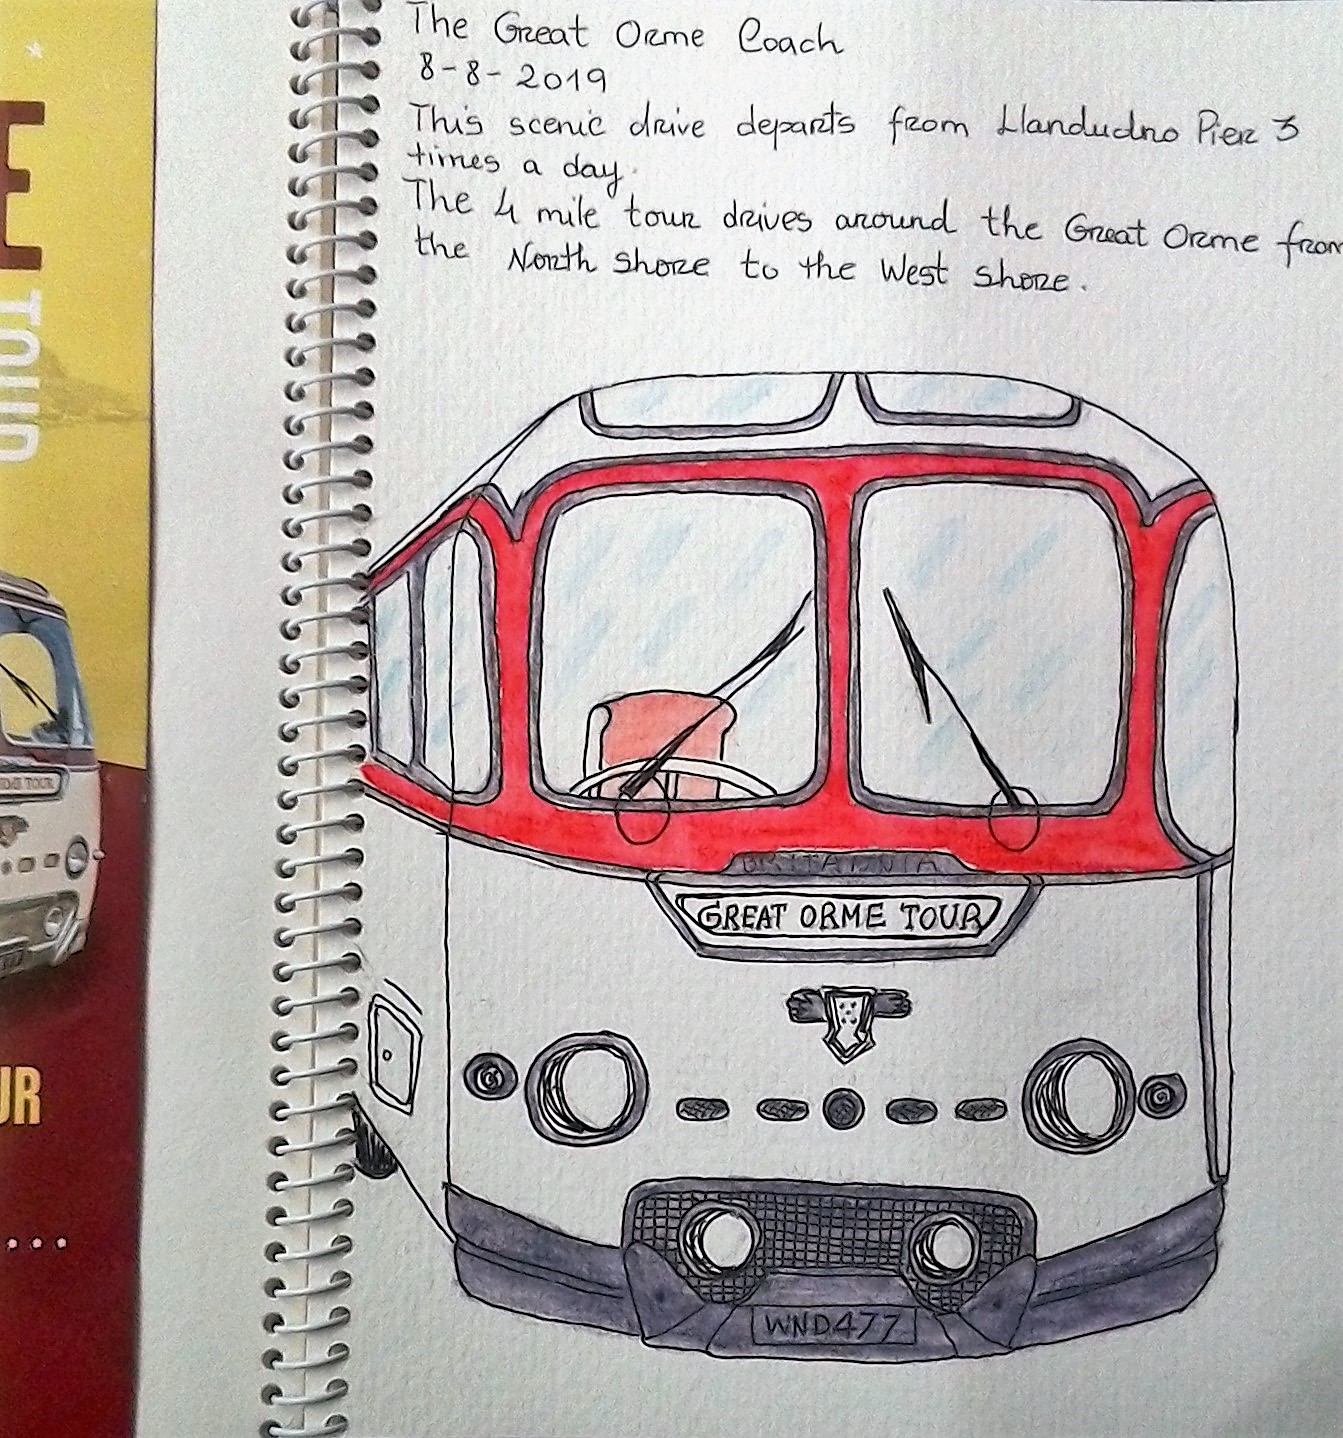 The Great Orme Coach
8-8-2019
This scenic drive departs from Llandudno Pier 3
times a day.
The 4 mile tour drives around the Great Orme from
the North shore to the West shore.
BRITANNIA
GREAT ORME TOUR
WND477
E
TOUR
ORME TOUR
UR